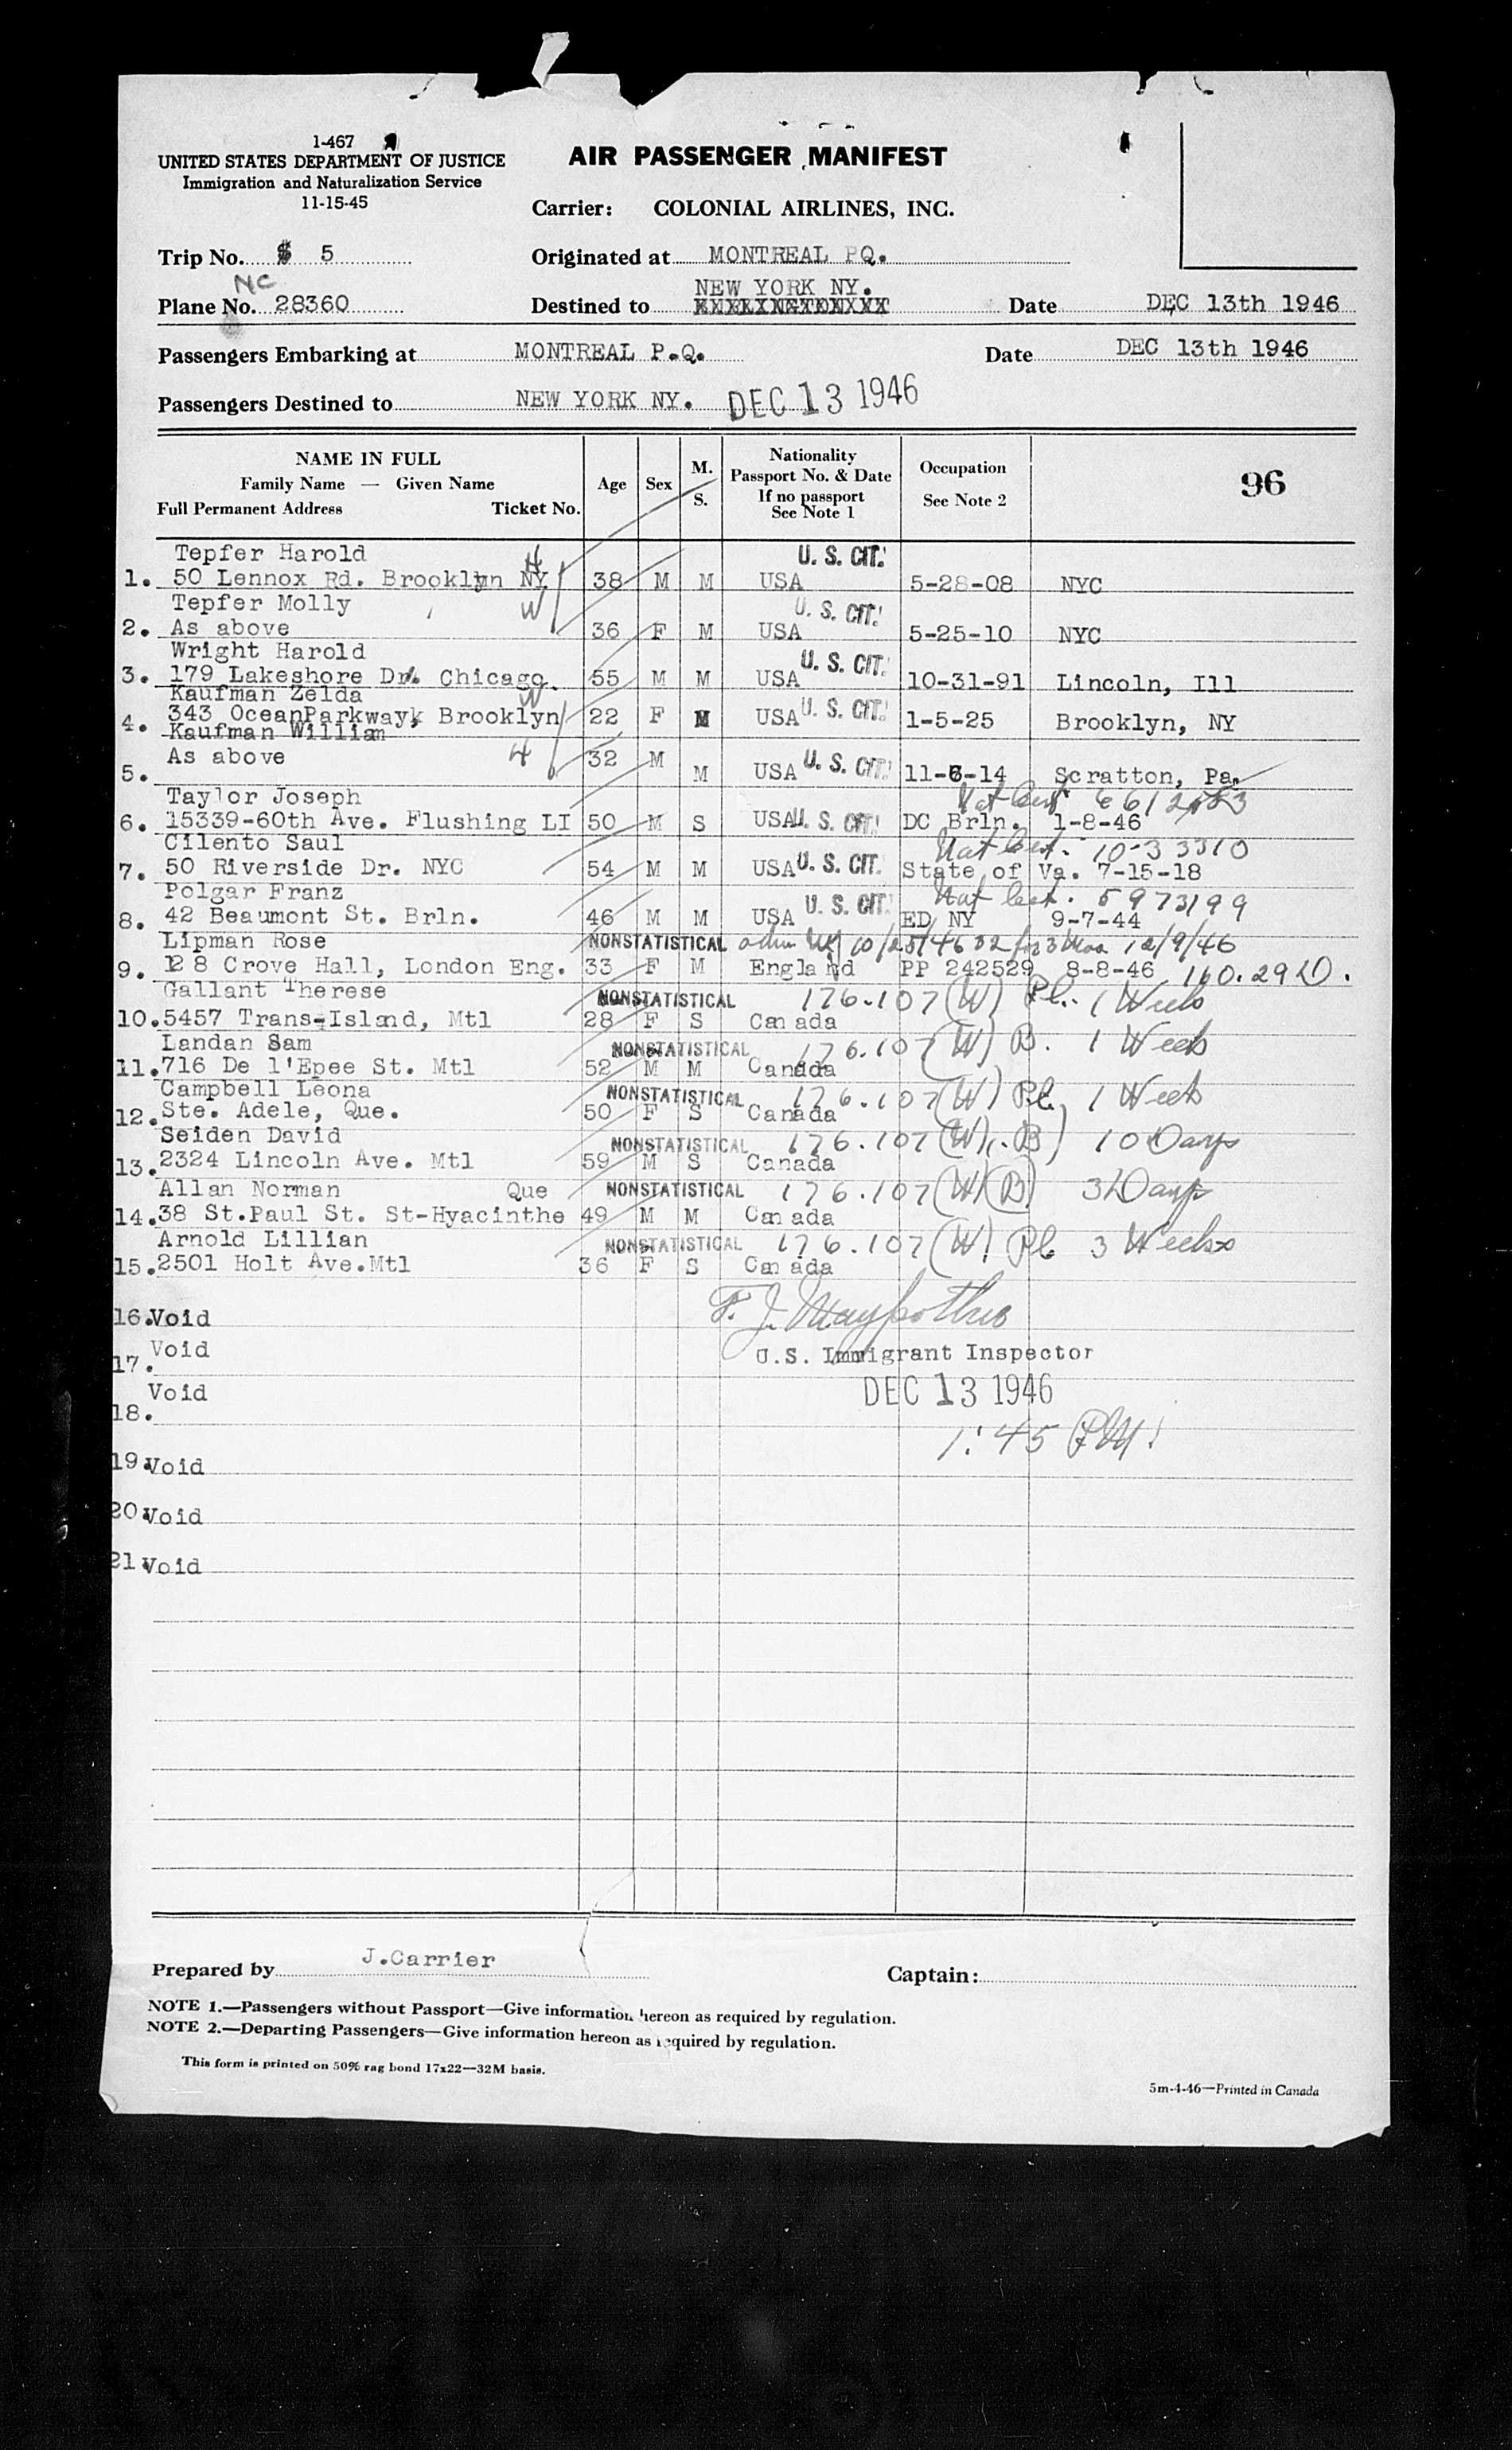 1-467
UNITED STATES DEPARTMENT OF JUSTICE
Immigration and Naturalization Service
11-15-45
AIR PASSENGER MANIFEST
Carrier: COLONIAL AIRLINES, INC.
Trip No. 5
Originated at MONTREAL PQ.
NC
Plane No. 28360
NEW YORK NY.
Destined to
Date DEC 13th 1946
Passengers Embarking at MONTREAL P.Q.
Date DEC 13th 1946
Passengers Destined to NEW YORK NY. DEC 13 1946
NAME IN FULL
Family Name — Given Name
Full Permanent Address Ticket No.
Age
Sex
M.
S.
Nationality
Passport No. & Date
If no passport
See Note 1
Occupation
See Note 2
96
Tepfer Harold H U. S. CIT.
1. 50 Lennox Rd. Brooklyn NY 38 M M USA 5-28-08 NYC
Tepfer Molly W U. S. CIT.
2. As above 36 F M USA 5-25-10 NYC
Wright Harold U. S. CIT.
3. 179 Lakeshore Dr. Chicago. 55 M M USA 10-31-91 Lincoln, Ill
Kaufman Zelda W
4. 343 OceanParkway, Brooklyn 22 F M USA U. S. CIT. 1-5-25 Brooklyn, NY
Kaufman William
As above H 32 M
5. M USA U. S. CIT. 11-6-14 Scratton, Pa.
Taylor Joseph Nat Cert
6. 15339-60th Ave. Flushing LI 50 M S USA U. S. CIT. DC Brln. 1-8-46
Cilento Saul Nat Cert. 10-33310
7. 50 Riverside Dr. NYC 54 M M USA U. S. CIT. State of Va. 7-15-18
Polgar Franz Nat Cert. 5973199
8. 42 Beaumont St. Brln. 46 M M USA U. S. CIT. ED NY 9-7-44
Lipman Rose NONSTATISTICAL adm NY 10/25/46 32 for 3 Mos 12/9/46
9. 128 Crove Hall, London Eng. 33 F M England PP 242529 8-8-46 160.29 D.
Gallant Therese NONSTATISTICAL 176.107 (W) Pl. 1 Week
10. 5457 Trans-Island, Mtl 28 F S Canada
Landan Sam NONSTATISTICAL 176.107 (W) B. 1 Week
11. 716 De l'Epee St. Mtl 52 M M Canada
Campbell Leona NONSTATISTICAL 176.107 (W) Pl. 1 Week
12. Ste. Adele, Que. 50 F S Canada
Seiden David NONSTATISTICAL 176.107 (W) (B) 10 Days
13. 2324 Lincoln Ave. Mtl 59 M S Canada
Allan Norman Que NONSTATISTICAL 176.107 (W) (B) 3 Days
14. 38 St.Paul St. St-Hyacinthe 49 M M Canada
Arnold Lillian NONSTATISTICAL 176.107 (W) Pl 3 Weeks
15. 2501 Holt Ave.Mtl 36 F S Canada
16. Void
U.S. Immigrant Inspector
17. Void
DEC 13 1946
18. Void
1:45 P.M.
19. Void
20. Void
21. Void
Prepared by J.Carrier
Captain:
NOTE 1.—Passengers without Passport—Give information hereon as required by regulation.
NOTE 2.—Departing Passengers—Give information hereon as required by regulation.
This form is printed on 50% rag bond 17x22—32M basis.
5m-4-46—Printed in Canada